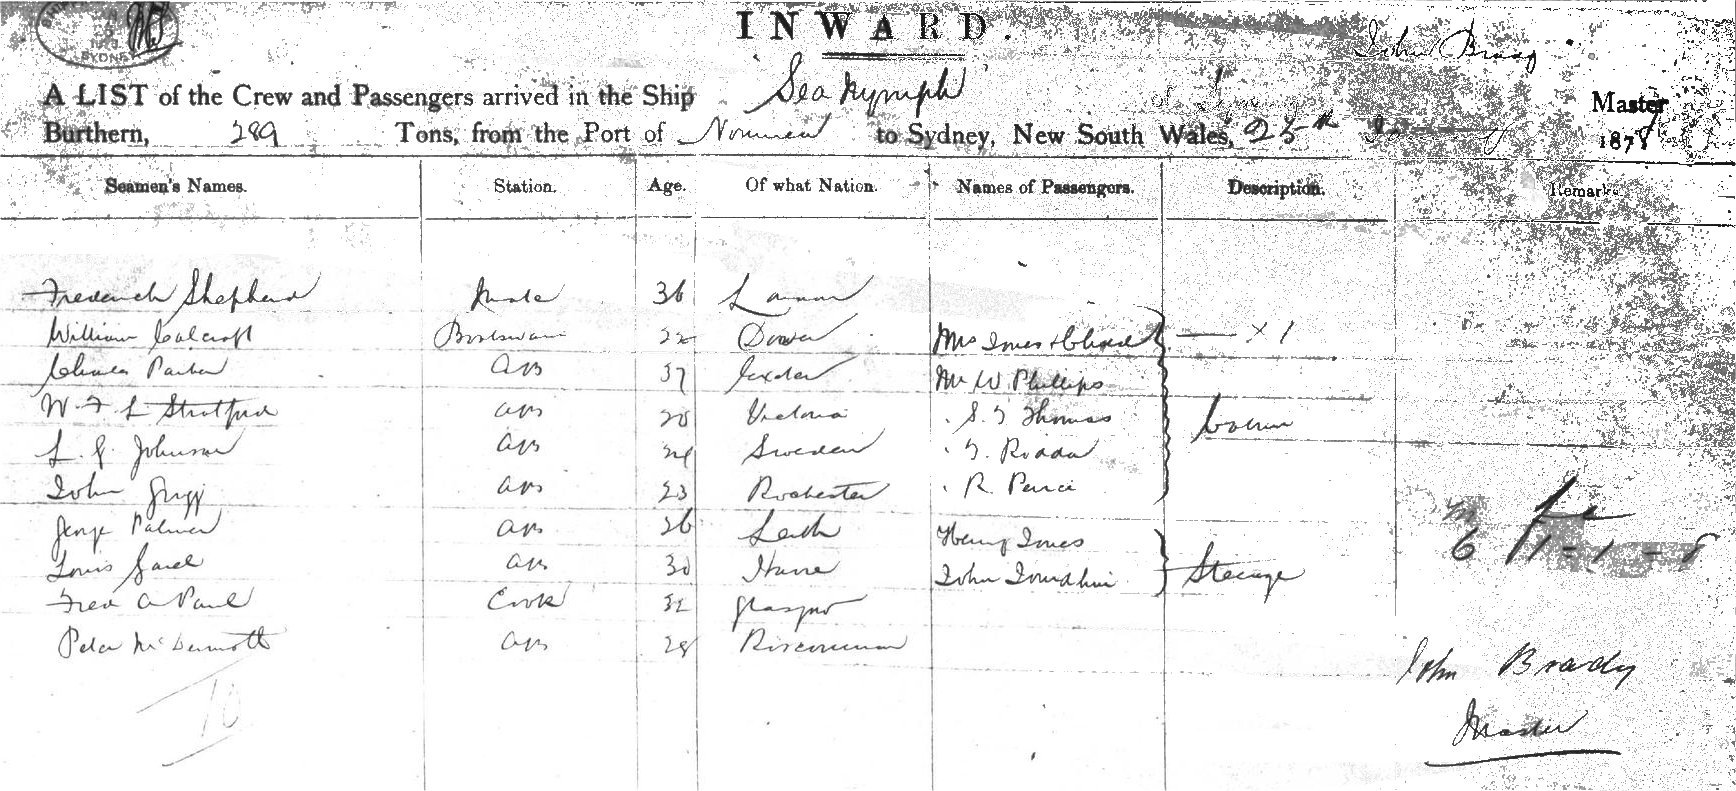 INWARD.
John Brady
A LIST of the Crew and Passengers arrived in the Ship Sea Nymph Master
Burthern, 289 Tons, from the Port of Noumea to Sydney, New South Wales, 25th 187
Seamen's Names. Station. Age. Of what Nation. Names of Passengers. Description. Remarks
Frederick Shepherd Mate 36
William Calcroft Boatswain 22 Dover Mrs Jones & Child — x 1
Charles Parker AB 37 Exeter Mr W Phillips
W. F. L Stratford AB 20 Victoria " S. T Thomas Cabin
L. G. Johnson AB 24 Sweden " T. Rodda
John Grigg AB 23 Rochester " R. Pearce
George Palmer AB 26 Leith Henry Jones
Louis AB 30 Havre John Steerage
Fred A Paul Cook 32 Glasgow
Peter McDermott AB 28 Roscommon
10
6 1 - 1 - 8
John Brady
Master